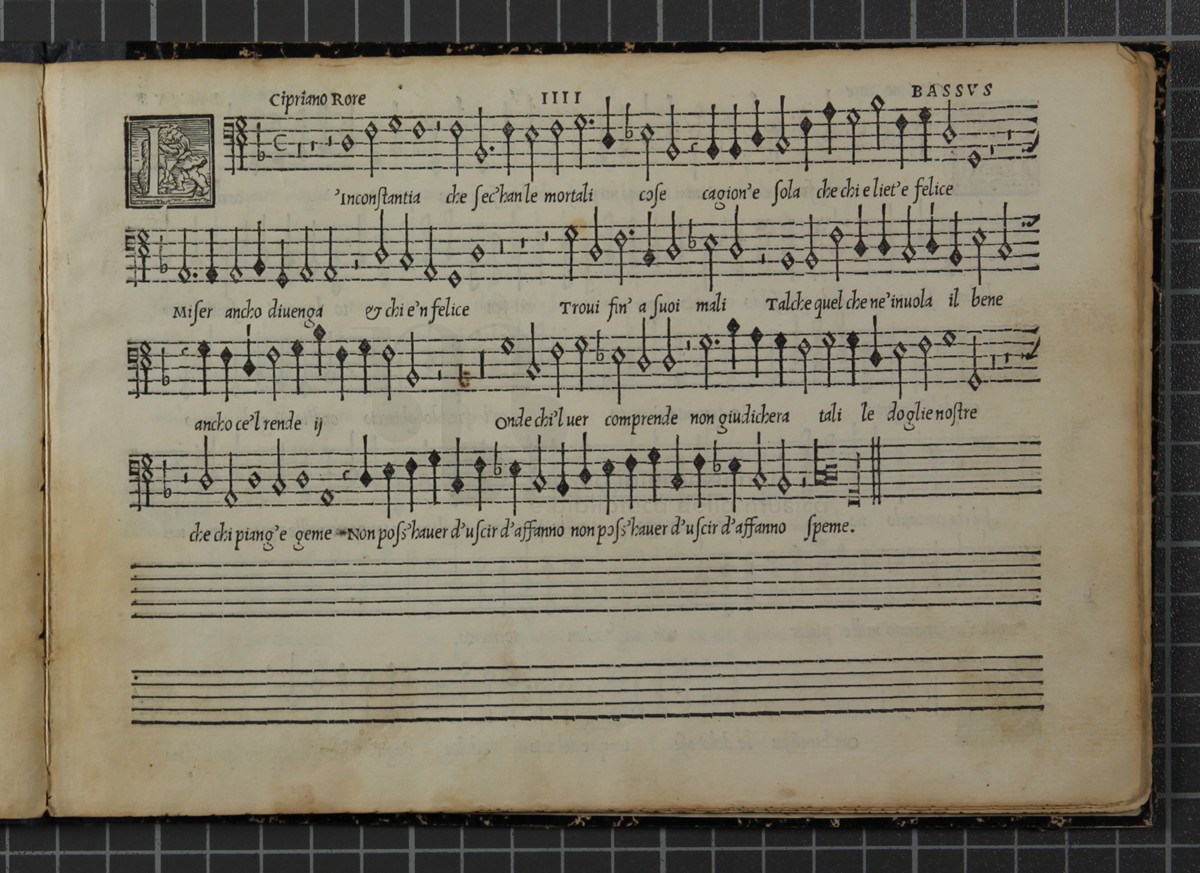 Cipriano Rore IIII BASSVS
L'Inconſtantia che ſec'han le mortali coſe cagion'e ſola che chi e liet'e felice
Miſer ancho diuenga & chi e'n felice Troui fin' a ſuoi mali Talche quel che ne'inuola il bene
ancho ce'l rende ij Onde chi'l uer comprende non giudichera tali le doglie noſtre
che chi piang'e geme Non poſſ'hauer d'uſcir d'affanno non poſſ'hauer d'uſcir d'affanno ſpeme.